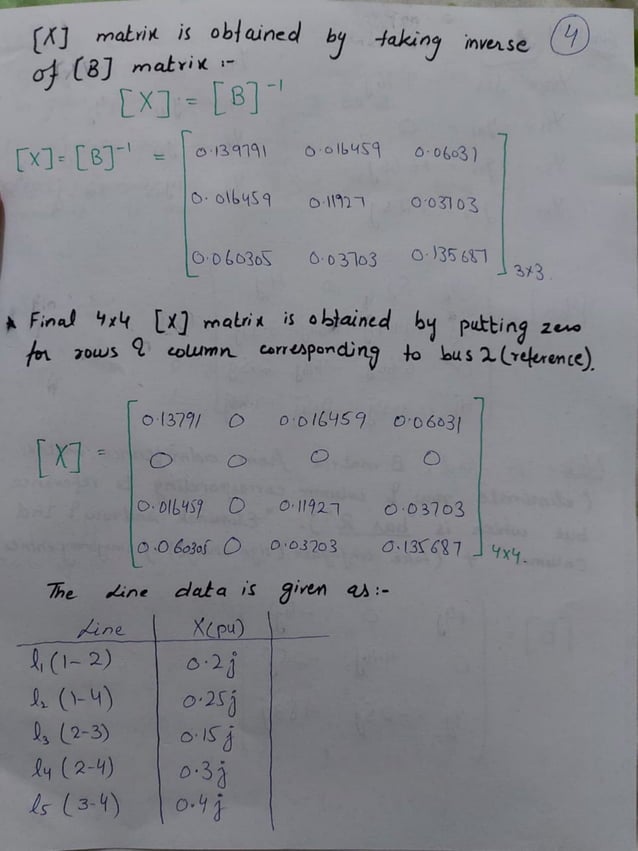 [X] matrix is obtained by taking inverse 4
of [B] matrix :-
[X] = [B]⁻¹
[X] = [B]⁻¹ = 0.139791 0.016459 0.06031
0.016459 0.11927 0.03703
0.060305 0.03703 0.135687 3×3.
* Final 4×4 [X] matrix is obtained by putting zero
for rows & column corresponding to bus 2 (reference).
0.13791 0 0.016459 0.06031
[X] = 0 0 0 0
0.016459 0 0.11927 0.03703
0.060305 0 0.03703 0.135687 4×4.
The Line data is given as :-
Line X(pu)
l₁ (1-2) 0.2j
l₂ (1-4) 0.25j
l₃ (2-3) 0.15j
l4 (2-4) 0.3j
l5 (3-4) 0.4j